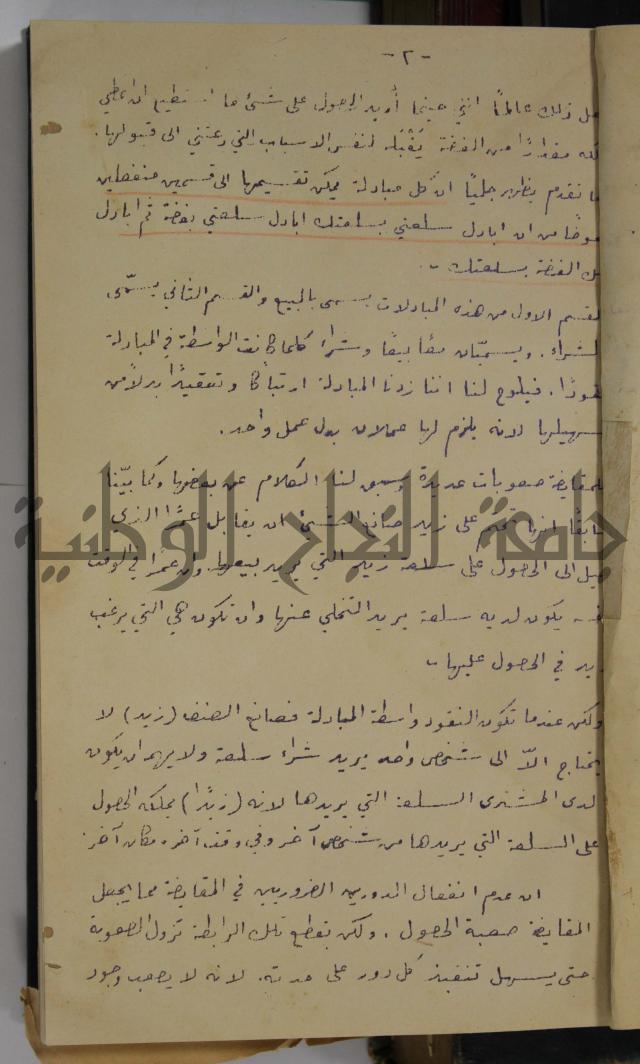 - ٢ -
ذلك عالماً انني حينما أريد الحصول على شيء ما استطيع ان اعطي
مقداراً من الفضة يَقْبَله لنفس الاسباب التي دعتني الى قبولها.
تقدم يظهر جلياً ان كل مبادلة يمكن تقسيمها الى قسمين منفصلين
من ان ابادل سلعتي بسلعتك ابادل سلعتي بفضة ثم ابادل
الفضة بسلعتك -
القسم الاول من هذه المبادلات يسمى بالمبيع والقسم الثاني يسمّى
الشراء. ويسميّان بيعاً وشراءً كلما كانت الواسطة في المبادلة
نقوداً. فيلوح لنا اننا زدنا المبادلة ارتباكاً وتعقيداً بدلاً من
تسهيلها لانه يلزم لها عملان بدل عمل واحد.
للمقايضة صعوبات عديدة وسبق لنا الكلام عن بعضها وكما بيّنا
سابقاً على زيد صانع الشيء ان يقابل عمراً الذي
يميل الى الحصول على سلعة زيد التي يريد بيعها. وان عمراً في الوقت
نفسه يكون لديه سلعة يريد التخلي عنها وان تكون هي التي يرغب
زيد في الحصول عليها -
ولكن عندما تكون النقود واسطة المبادلة فصانع الصنف (زيد) لا
يحتاج الاّ الى شخص واحد يريد شراء سلعة ولا يهم ان يكون
لدى المشتري السلعة التي يريدها لانه (زيداً) يمكنه الحصول
على السلعة التي يريدها من شخص آخر وفي وقت آخر ومكان آخر.
ان عدم انفصال الدورين الضروريين في المقايضة مما يجعل
المقايضة صعبة الحصول. ولكن بقطع تلك الرابطة تزول الصعوبة
حتى يسهل تنفيذ كل دور على حدته. لانه لا يصعب وجود
جامعة النجاح الوطنية